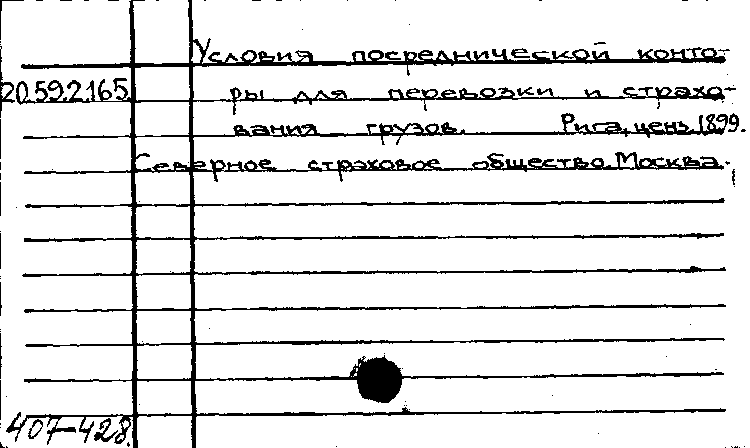 Условия посреднической конто-
20.59.2.165. ры для перевозки и страхо-
вания грузов. Рига, ценз. 1899.
Северное страховое общество. Москва.
407-428.